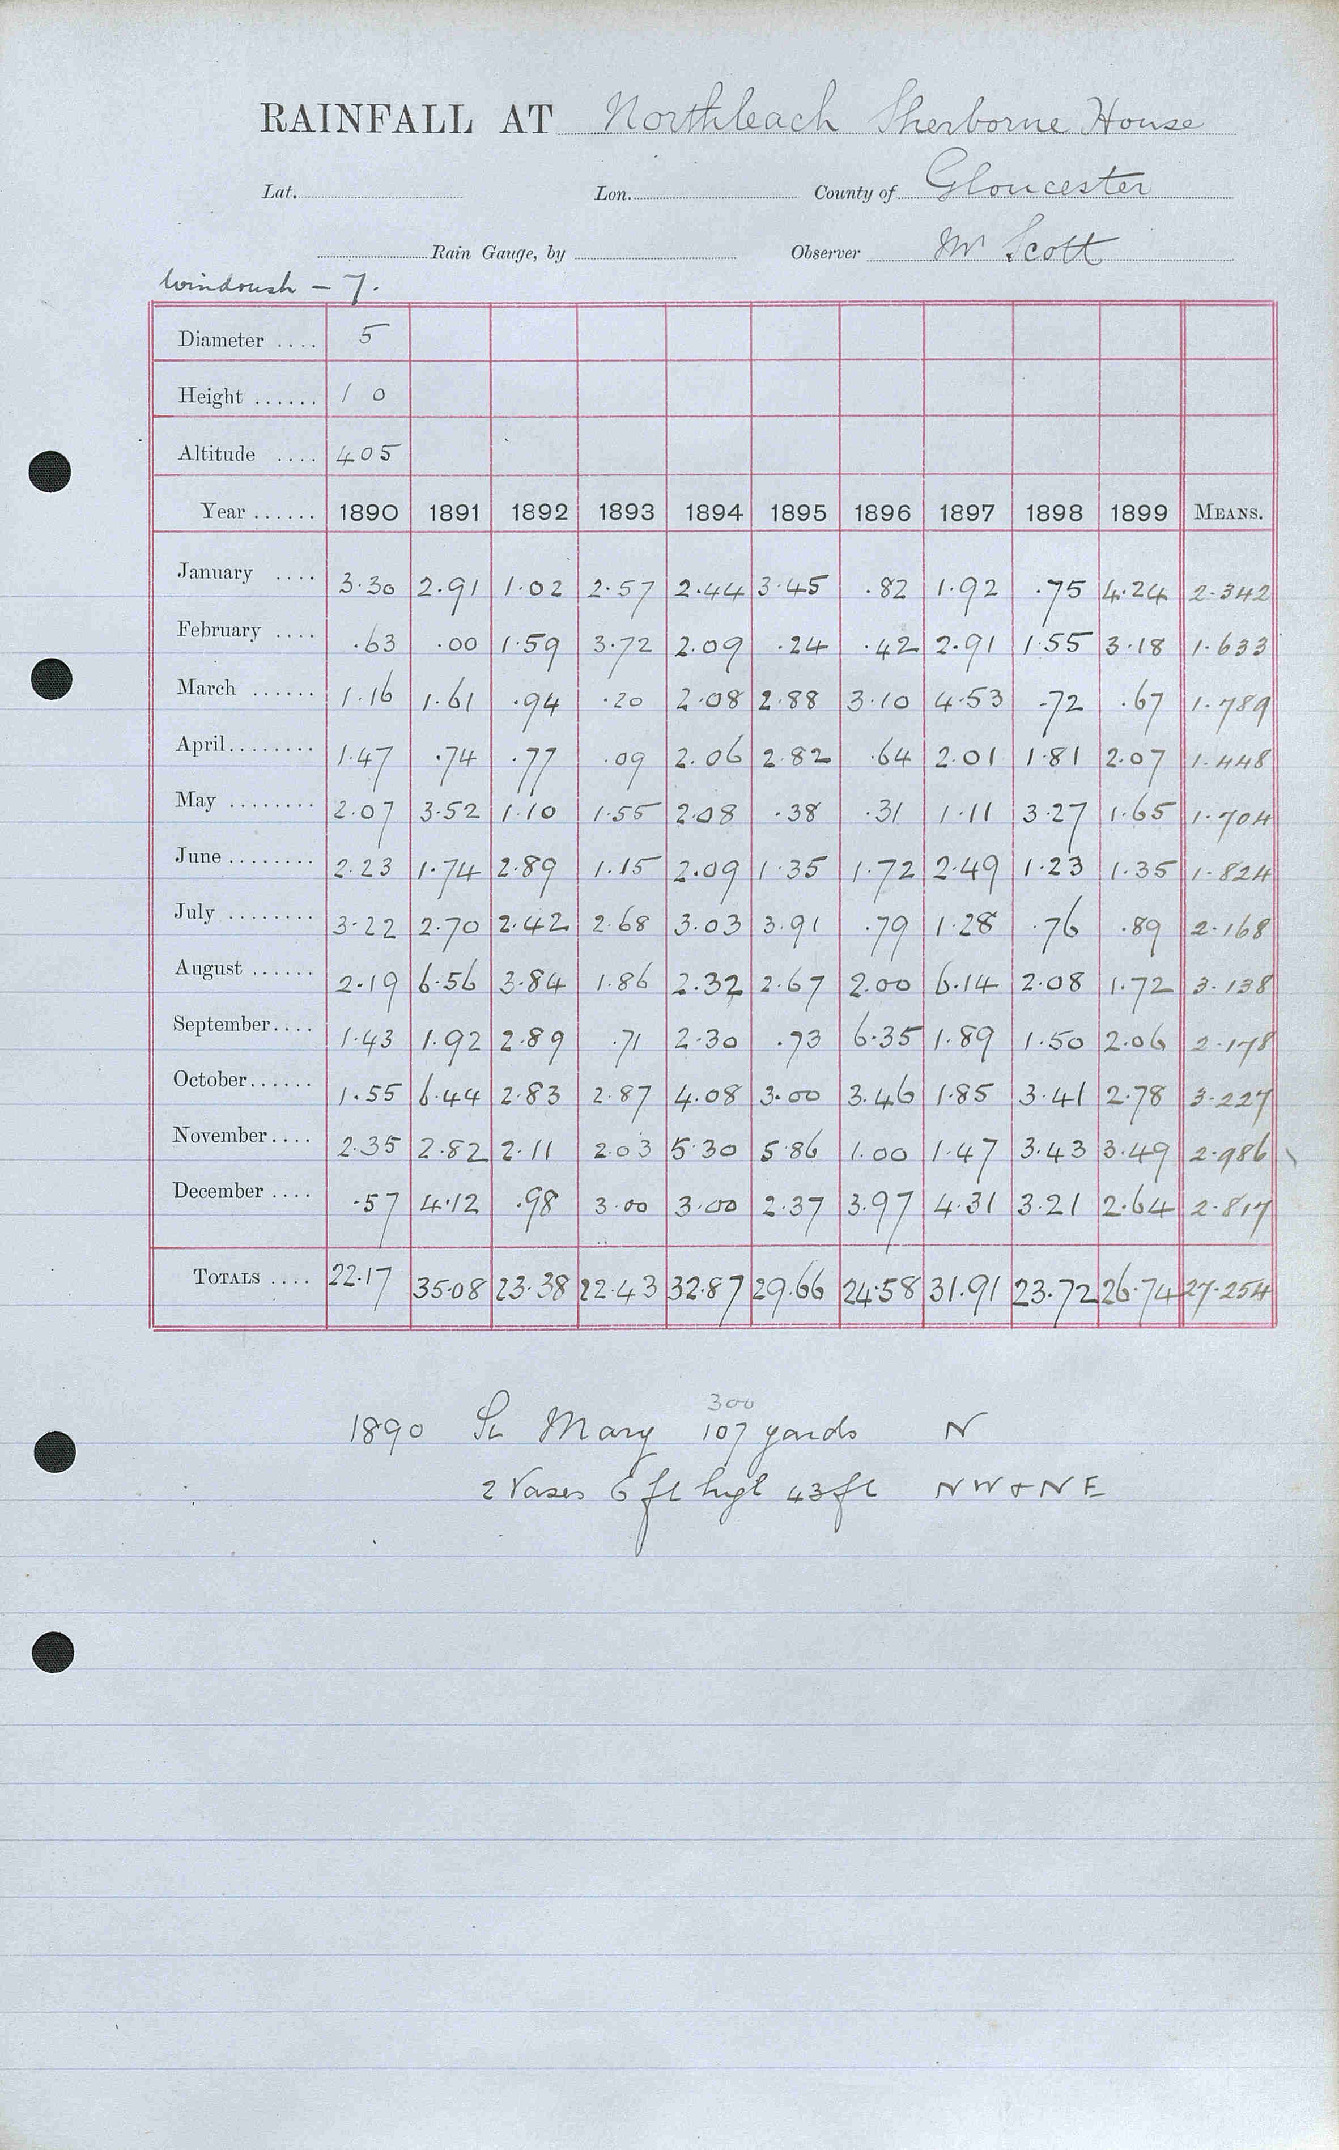 RAINFALL AT Northleach Sherborne House
Lat. Lon. County of Gloucester
Rain Gauge, by Observer Mr Scott
Windrush – 7.
Diameter .... 5
Height ...... 1 0
Altitude .... 405
Year ...... 1890 1891 1892 1893 1894 1895 1896 1897 1898 1899 MEANS.
January .... 3.30 2.91 1.02 2.57 2.44 3.45 .82 1.92 .75 4.24 2.342
February .... .63 .00 1.59 3.72 2.09 .24 .42 2.91 1.55 3.18 1.633
March ...... 1.16 1.61 .94 .20 2.08 2.88 3.10 4.53 .72 .67 1.789
April........ 1.47 .74 .77 .09 2.06 2.82 .64 2.01 1.81 2.07 1.448
May ........ 2.07 3.52 1.10 1.55 2.08 .38 .31 1.11 3.27 1.65 1.704
June ........ 2.23 1.74 2.89 1.15 2.09 1.35 1.72 2.49 1.23 1.35 1.824
July ........ 3.22 2.70 2.42 2.68 3.03 3.91 .79 1.28 .76 .89 2.168
August ...... 2.19 6.56 3.84 1.86 2.32 2.67 2.00 6.14 2.08 1.72 3.138
September.... 1.43 1.92 2.89 .71 2.30 .73 6.35 1.89 1.50 2.06 2.178
October...... 1.55 6.44 2.83 2.87 4.08 3.00 3.46 1.85 3.41 2.78 3.227
November.... 2.35 2.82 2.11 2.03 5.30 5.86 1.00 1.47 3.43 3.49 2.986
December .... .57 4.12 .98 3.00 3.00 2.37 3.97 4.31 3.21 2.64 2.817
TOTALS .... 22.17 35.08 23.38 22.43 32.87 29.66 24.58 31.91 23.72 26.74 27.254
300
1890 Mary 107 yards N
2 Vases 6 ft high 43 ft NW & NE